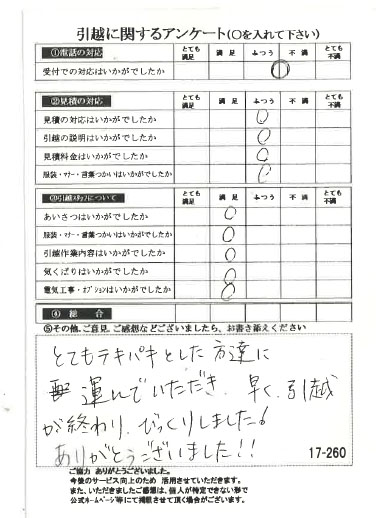 引越に関するアンケート(○を入れて下さい)
①電話の対応 とても満足 満足 ふつう 不満 とても不満
受付での対応はいかがでしたか
②見積の対応 とても満足 満足 ふつう 不満 とても不満
見積の対応はいかがでしたか
引越の説明はいかがでしたか
見積料金はいかがでしたか
服装・マナー・言葉つかいはいかがでしたか
③引越スタッフについて とても満足 満足 ふつう 不満 とても不満
あいさつはいかがでしたか
服装・マナー・言葉つかいはいかがでしたか
引越作業内容はいかがでしたか
気くばりはいかがでしたか
電気工事・オプションはいかがでしたか
④ 総 合
⑤その他、ご意見、ご感想などございましたら、お書き添えください
とてもテキパキとした方達に
運んでいただき、早く、引越
が終わり、びっくりしました!
ありがとうございました!!
17-260
ご協力 ありがとうございました。
今後のサービス向上のため 活用させていただきます。
また、いただきましたご感想は、個人が特定できない形で
公式ホームページ等にて掲載させて頂く場合がございます。